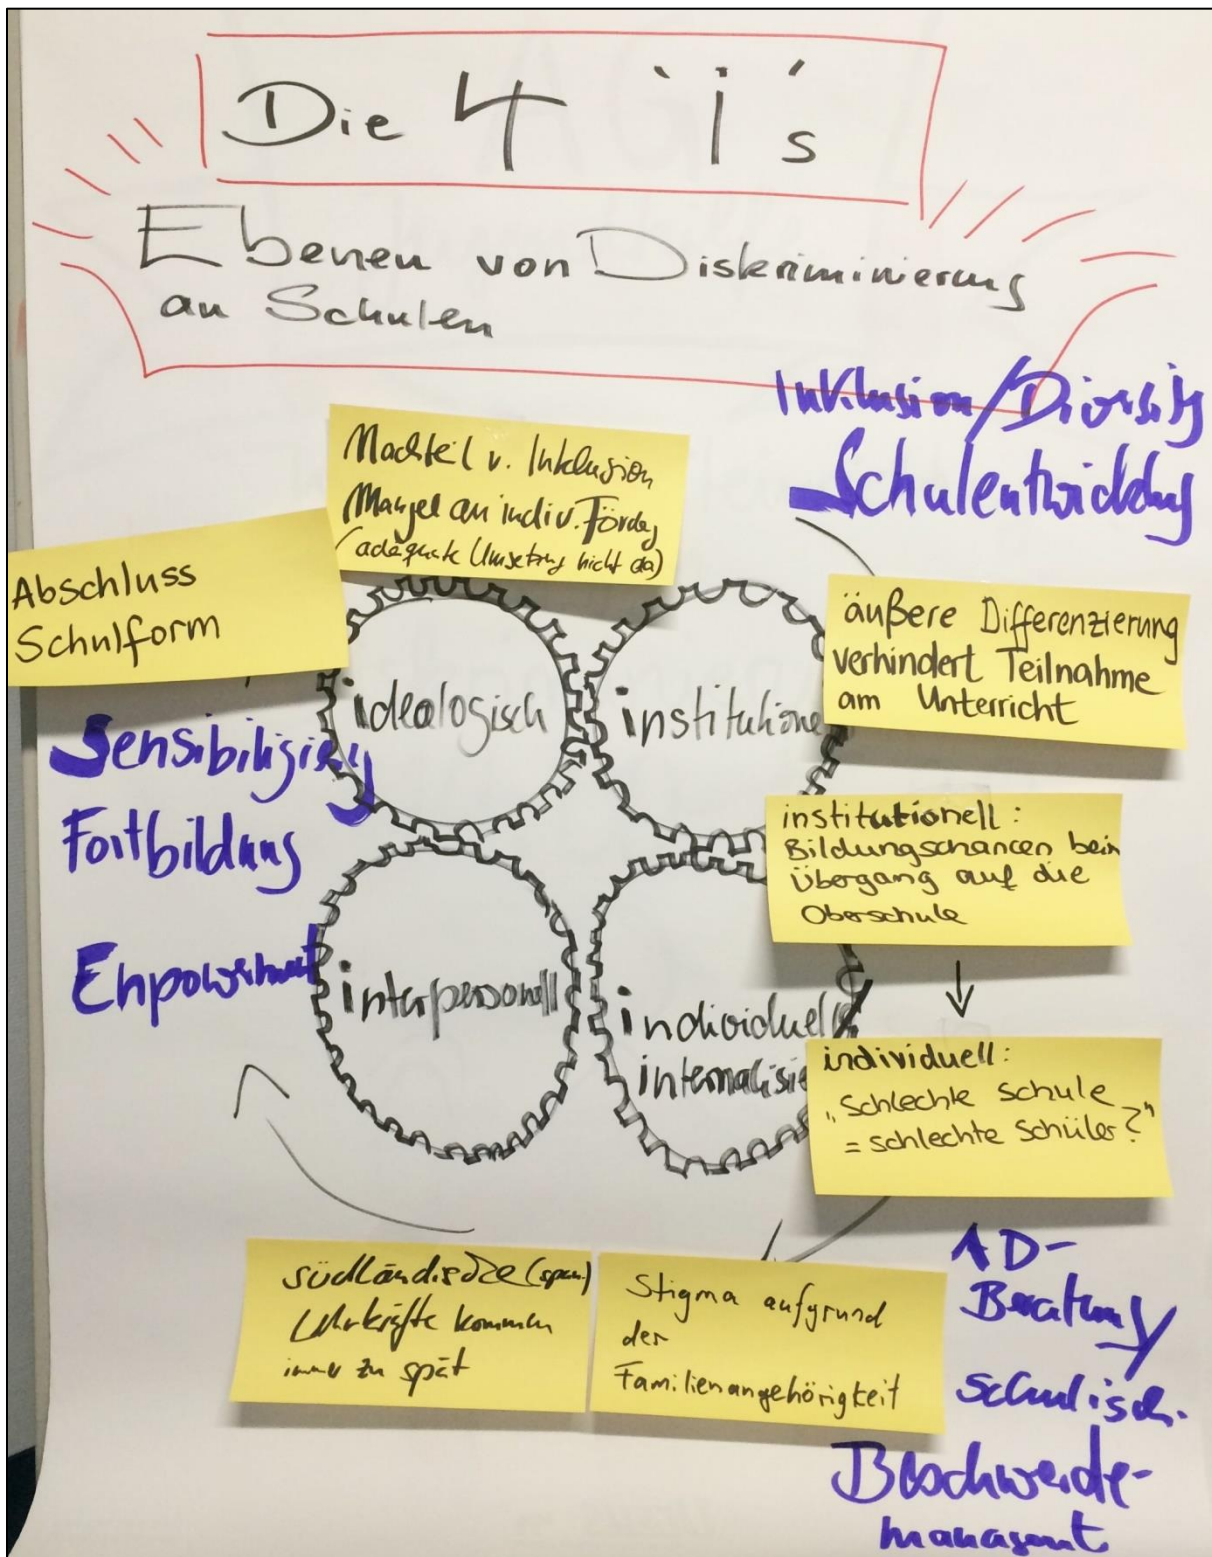 Die 4 'i's
Ebenen von Diskriminierung
an Schulen
Inklusion/Diversity
Schulentwicklung
Nachteil v. Inklusion
Mangel an indiv. Förderg
(adäquate Umsetzung nicht da)
Abschluss
Schulform
äußere Differenzierung
verhindert Teilnahme
am Unterricht
idealogisch
institutione
Sensibilisierg
Fortbildung
Empowerment
institutionell:
Bildungschancen beim
Übergang auf die
Oberschule
interpersonell
individuell
internalisie
individuell:
"schlechte Schule
= schlechte Schüler?"
südländische (span.)
Lehrkräfte kommen
immer zu spät
Stigma aufgrund
der
Familienangehörigkeit
AD-
Beratung
schulisch.
Beschwerde-
managemt